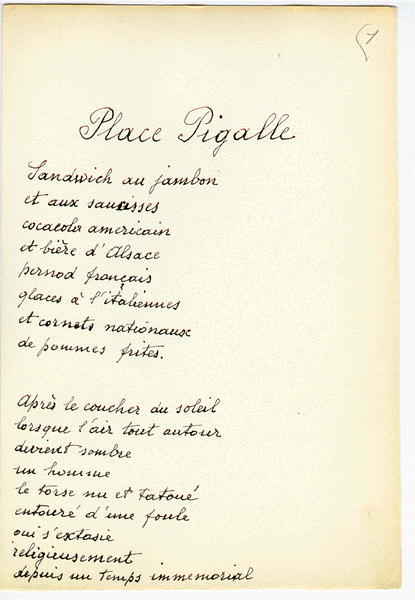 Place Pigalle
Sandwich au jambon
et aux saucisses
cocacola americain
et bière d'Alsace
pernod français
glaces à l'italiennes
et cornets nationaux
de pommes frites.
Après le coucher du soleil
lorsque l'air tout autour
devient sombre
un homme
le torse nu et tatoué
entouré d'une foule
qui s'extasie
religieusement
depuis un temps immemorial